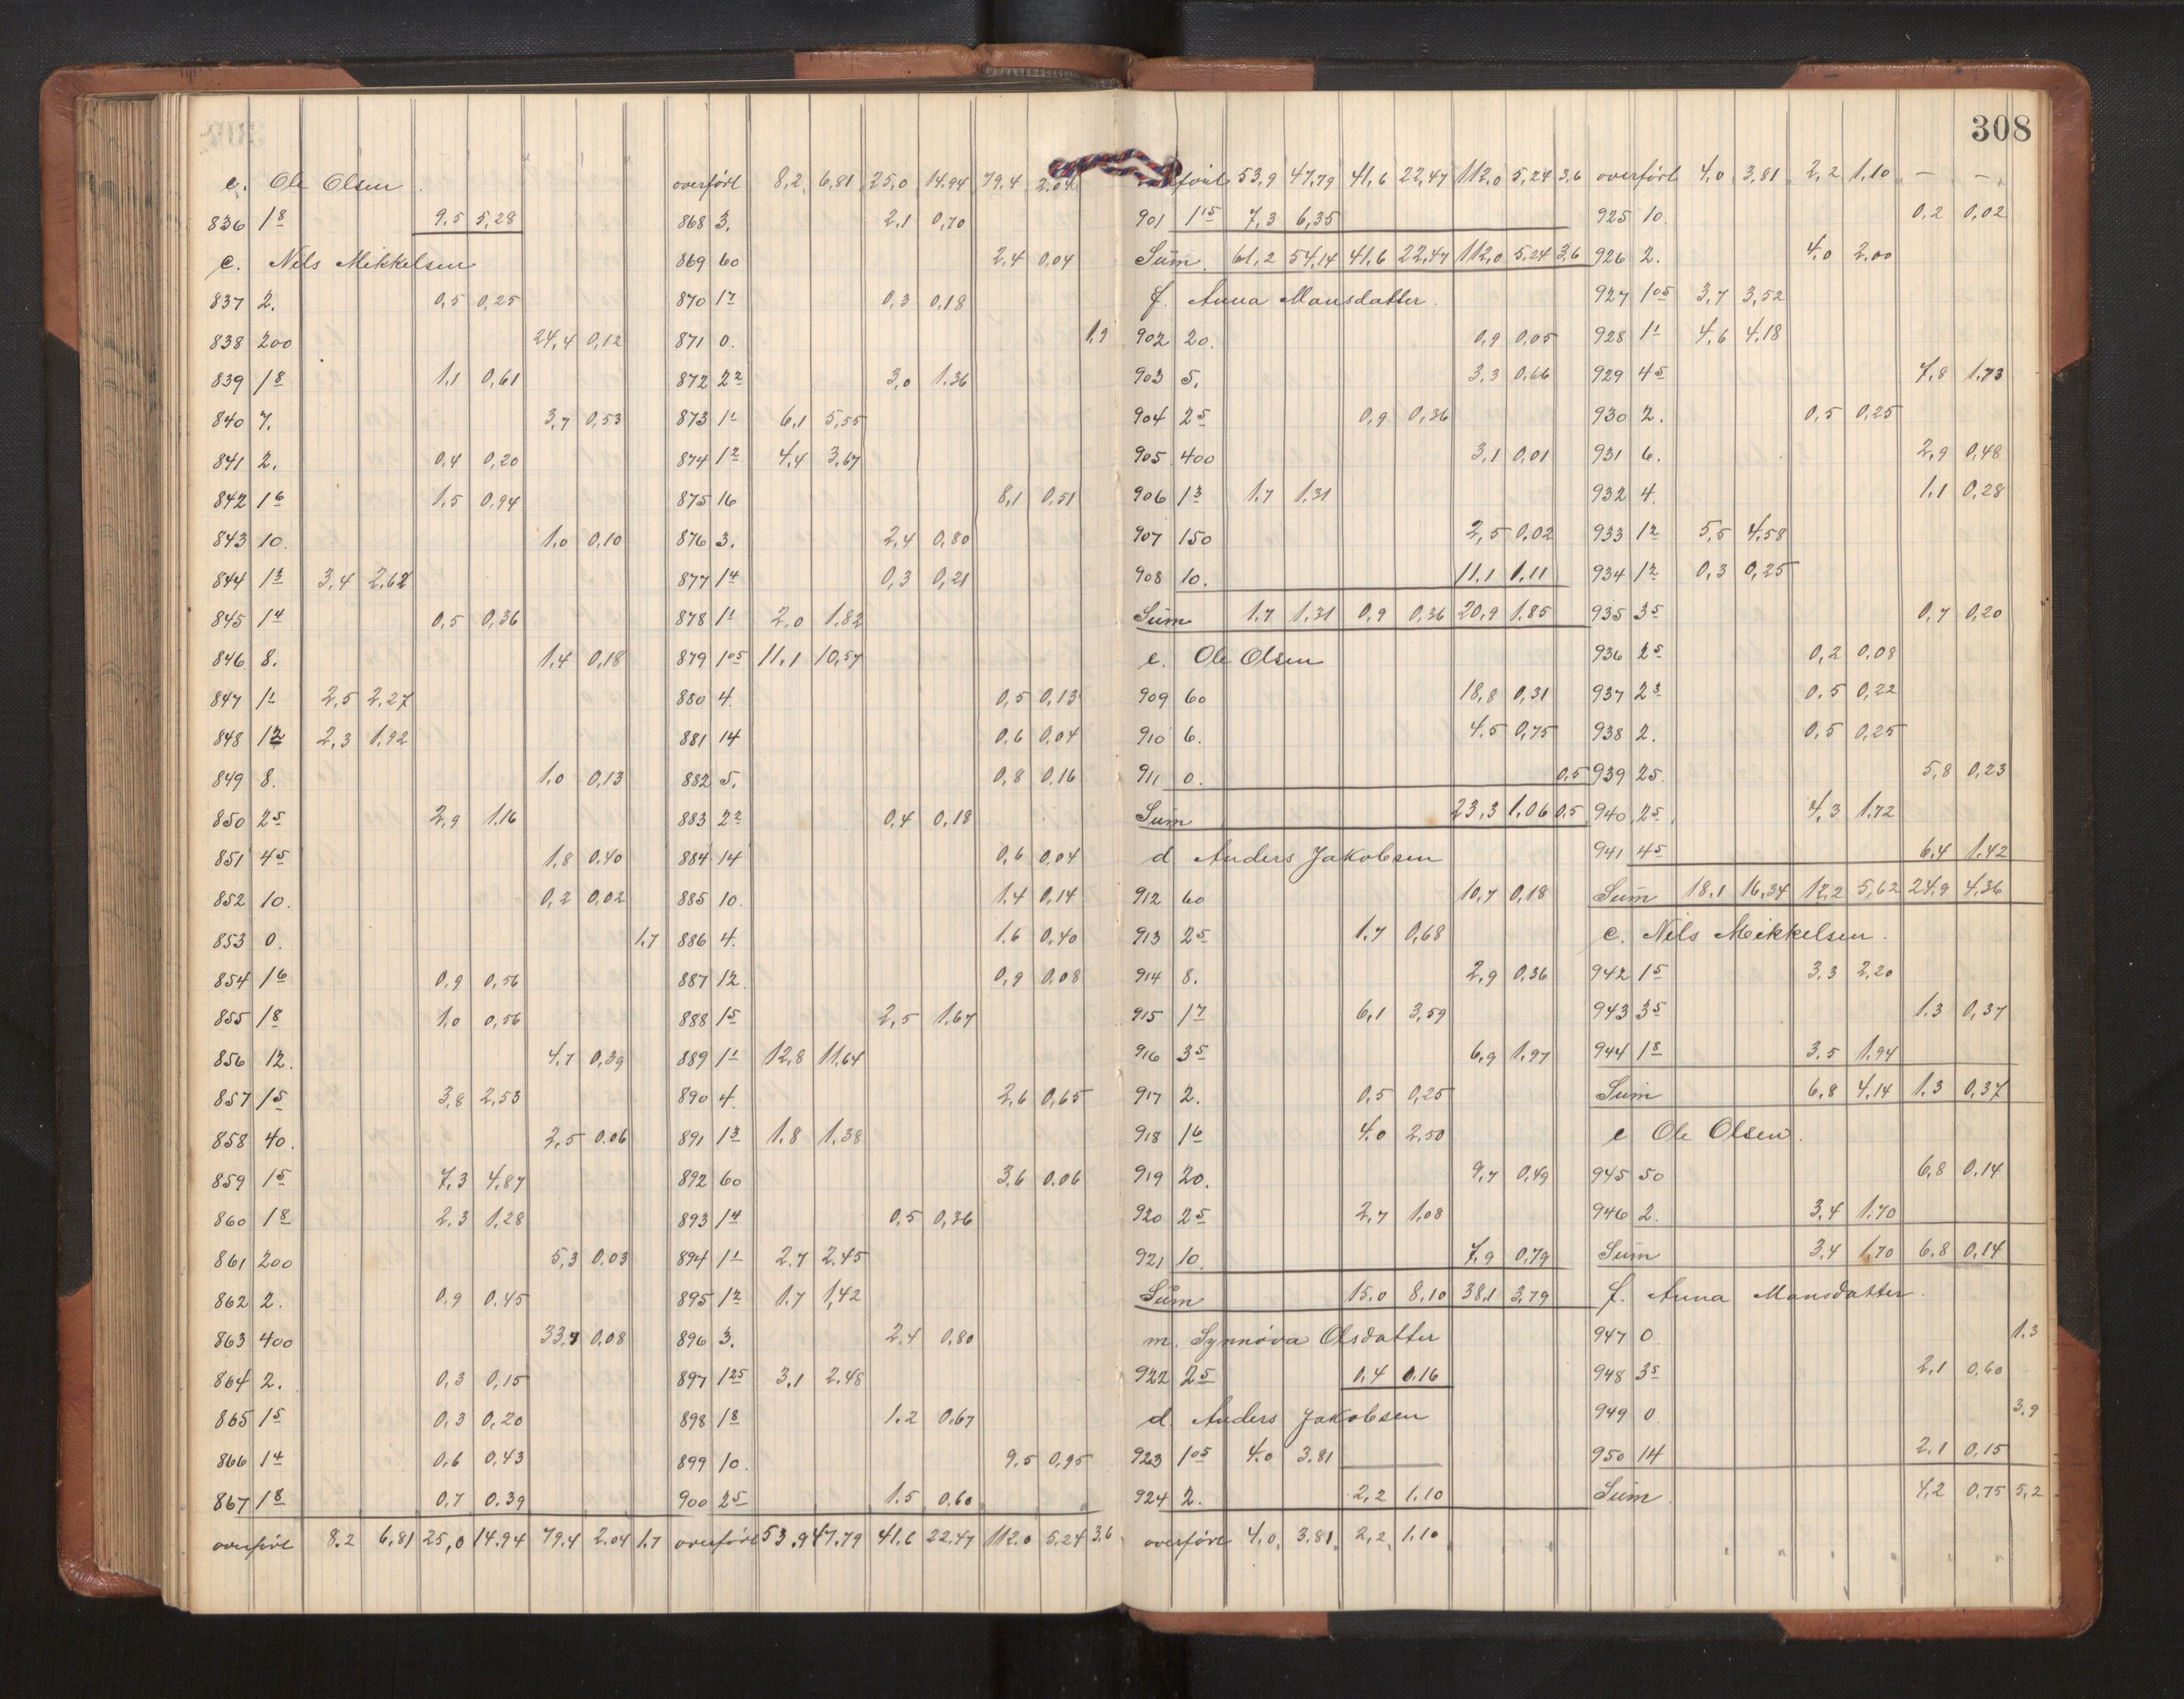 308
e. Ole Olsen
836 1⁸ 9,5 5,28
c. Nils Mikkelsen
837 2. 0,5 0,25
838 200 24,4 0,12
839 1⁸ 1,1 0,61
840 7. 3,7 0,53
841 2. 0,4 0,20
842 1⁶ 1,5 0,94
843 10. 1,0 0,10
844 1³ 3,4 2,62
845 1⁴ 0,5 0,36
846 8. 1,4 0,18
847 1¹ 2,5 2,27
848 1² 2,3 1,92
849 8. 1,0 0,13
850 2⁵ 2,9 1,16
851 4⁵ 1,8 0,40
852 10. 0,2 0,02
853 0. 1,7
854 1⁶ 0,9 0,56
855 1⁸ 1,0 0,56
856 12. 4,7 0,39
857 1⁵ 3,8 2,53
858 40. 2,5 0,06
859 1⁵ 7,3 4,87
860 1⁸ 2,3 1,28
861 200 5,3 0,03
862 2. 0,9 0,45
863 400 33,7 0,08
864 2. 0,3 0,15
865 1⁵ 0,3 0,20
866 1⁴ 0,6 0,43
867 1⁸ 0,7 0,39
overført 8,2 6,81 25,0 14,94 79,4 2,04 1,7
overført 8,2 6,81 25,0 14,94 79,4 2,04
868 3. 2,1 0,70
869 60 2,4 0,04
870 1⁷ 0,3 0,18
871 0. 1,9
872 2² 3,0 1,36
873 1¹ 6,1 5,55
874 1² 4,4 3,67
875 16 8,1 0,51
876 3. 2,4 0,80
877 1⁴ 0,3 0,21
878 1¹ 2,0 1,82
879 1⁰⁵ 11,1 10,57
880 4. 0,5 0,13
881 14 0,6 0,04
882 5. 0,8 0,16
883 2² 0,4 0,18
884 14 0,6 0,04
885 10. 1,4 0,14
886 4. 1,6 0,40
887 12. 0,9 0,08
888 1⁵ 2,5 1,67
889 1¹ 12,8 11,64
890 4. 2,6 0,65
891 1³ 1,8 1,38
892 60 3,6 0,06
893 1⁴ 0,5 0,36
894 1¹ 2,7 2,45
895 1² 1,7 1,42
896 3. 2,4 0,80
897 1²⁵ 3,1 2,48
898 1⁸ 1,2 0,67
899 10. 9,5 0,95
900 2⁵ 1,5 0,60
overført 53,9 47,79 41,6 22,47 112,0 5,24 3,6
ført 53,9 47,79 41,6 22,47 112,0 5,24 3,6
901 1¹⁵ 7,3 6,35
Sum. 61,2 54,14 41,6 22,47 112,0 5,24 3,6
f. Anna Monsdatter.
902 20. 0,9 0,05
903 5. 3,3 0,66
904 2⁵ 0,9 0,36
905 400 3,1 0,01
906 1³ 1,7 1,31
907 150 2,5 0,02
908 10. 11,1 1,11
Sum 1,7 1,31 0,9 0,36 20,9 1,85
e. Ole Olsen
909 60 18,8 0,31
910 6. 4,5 0,75
911 0. 0,5
Sum 23,3 1,06 0,5
d Anders Jakobsen
912 60 10,7 0,18
913 2⁵ 1,7 0,68
914 8. 2,9 0,36
915 1⁷ 6,1 3,59
916 3⁵ 6,9 1,97
917 2. 0,5 0,25
918 1⁶ 4,0 2,50
919 20. 9,7 0,49
920 2⁵ 2,7 1,08
921 10. 7,9 0,79
Sum 15,0 8,10 38,1 3,79
m. Synnøva Olsdatter
922 2⁵ 0,4 0,16
d. Anders Jakobsen
923 1⁰⁵ 4,0 3,81
924 2. 2,2 1,10
overført 4,0 3,81 2,2 1,10
overført 4,0 3,81 2,2 1,10 — —
925 10. 0,2 0,02
926 2. 4,0 2,00
927 1⁰⁵ 3,7 3,52
928 1¹ 4,6 4,18
929 4⁵ 7,8 1,73
930 2. 0,5 0,25
931 6. 2,9 0,48
932 4. 1,1 0,28
933 1² 5,5 4,58
934 1² 0,3 0,25
935 3⁵ 0,7 0,20
936 2⁵ 0,2 0,08
937 2³ 0,5 0,22
938 2. 0,5 0,25
939 25. 5,8 0,23
940 2⁵ 4,3 1,72
941 4⁵ 6,4 1,42
Sum 18,1 16,34 12,2 5,62 24,9 4,36
c. Nils Mikkelsen.
942 1⁵ 3,3 2,20
943 3⁵ 1,3 0,37
944 1⁸ 3,5 1,94
Sum 6,8 4,14 1,3 0,37
e Ole Olsen.
945 50 6,8 0,14
946 2. 3,4 1,70
Sum 3,4 1,70 6,8 0,14
f. Anna Monsdatter.
947 0 1,3
948 3⁵ 2,1 0,60
949 0 3,9
950 14 2,1 0,15
Sum 4,2 0,75 5,2